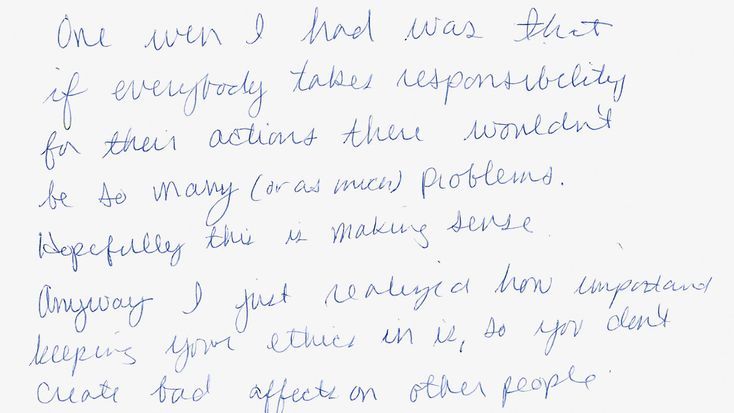 One wen I had was that
if everybody takes responsibility
for their actions there wouldn't
be so many (or as much) problems.
Hopefully this is making sense.
Anyway I just realized how importand
keeping your ethics in is, so you don't
create bad affects on other people.